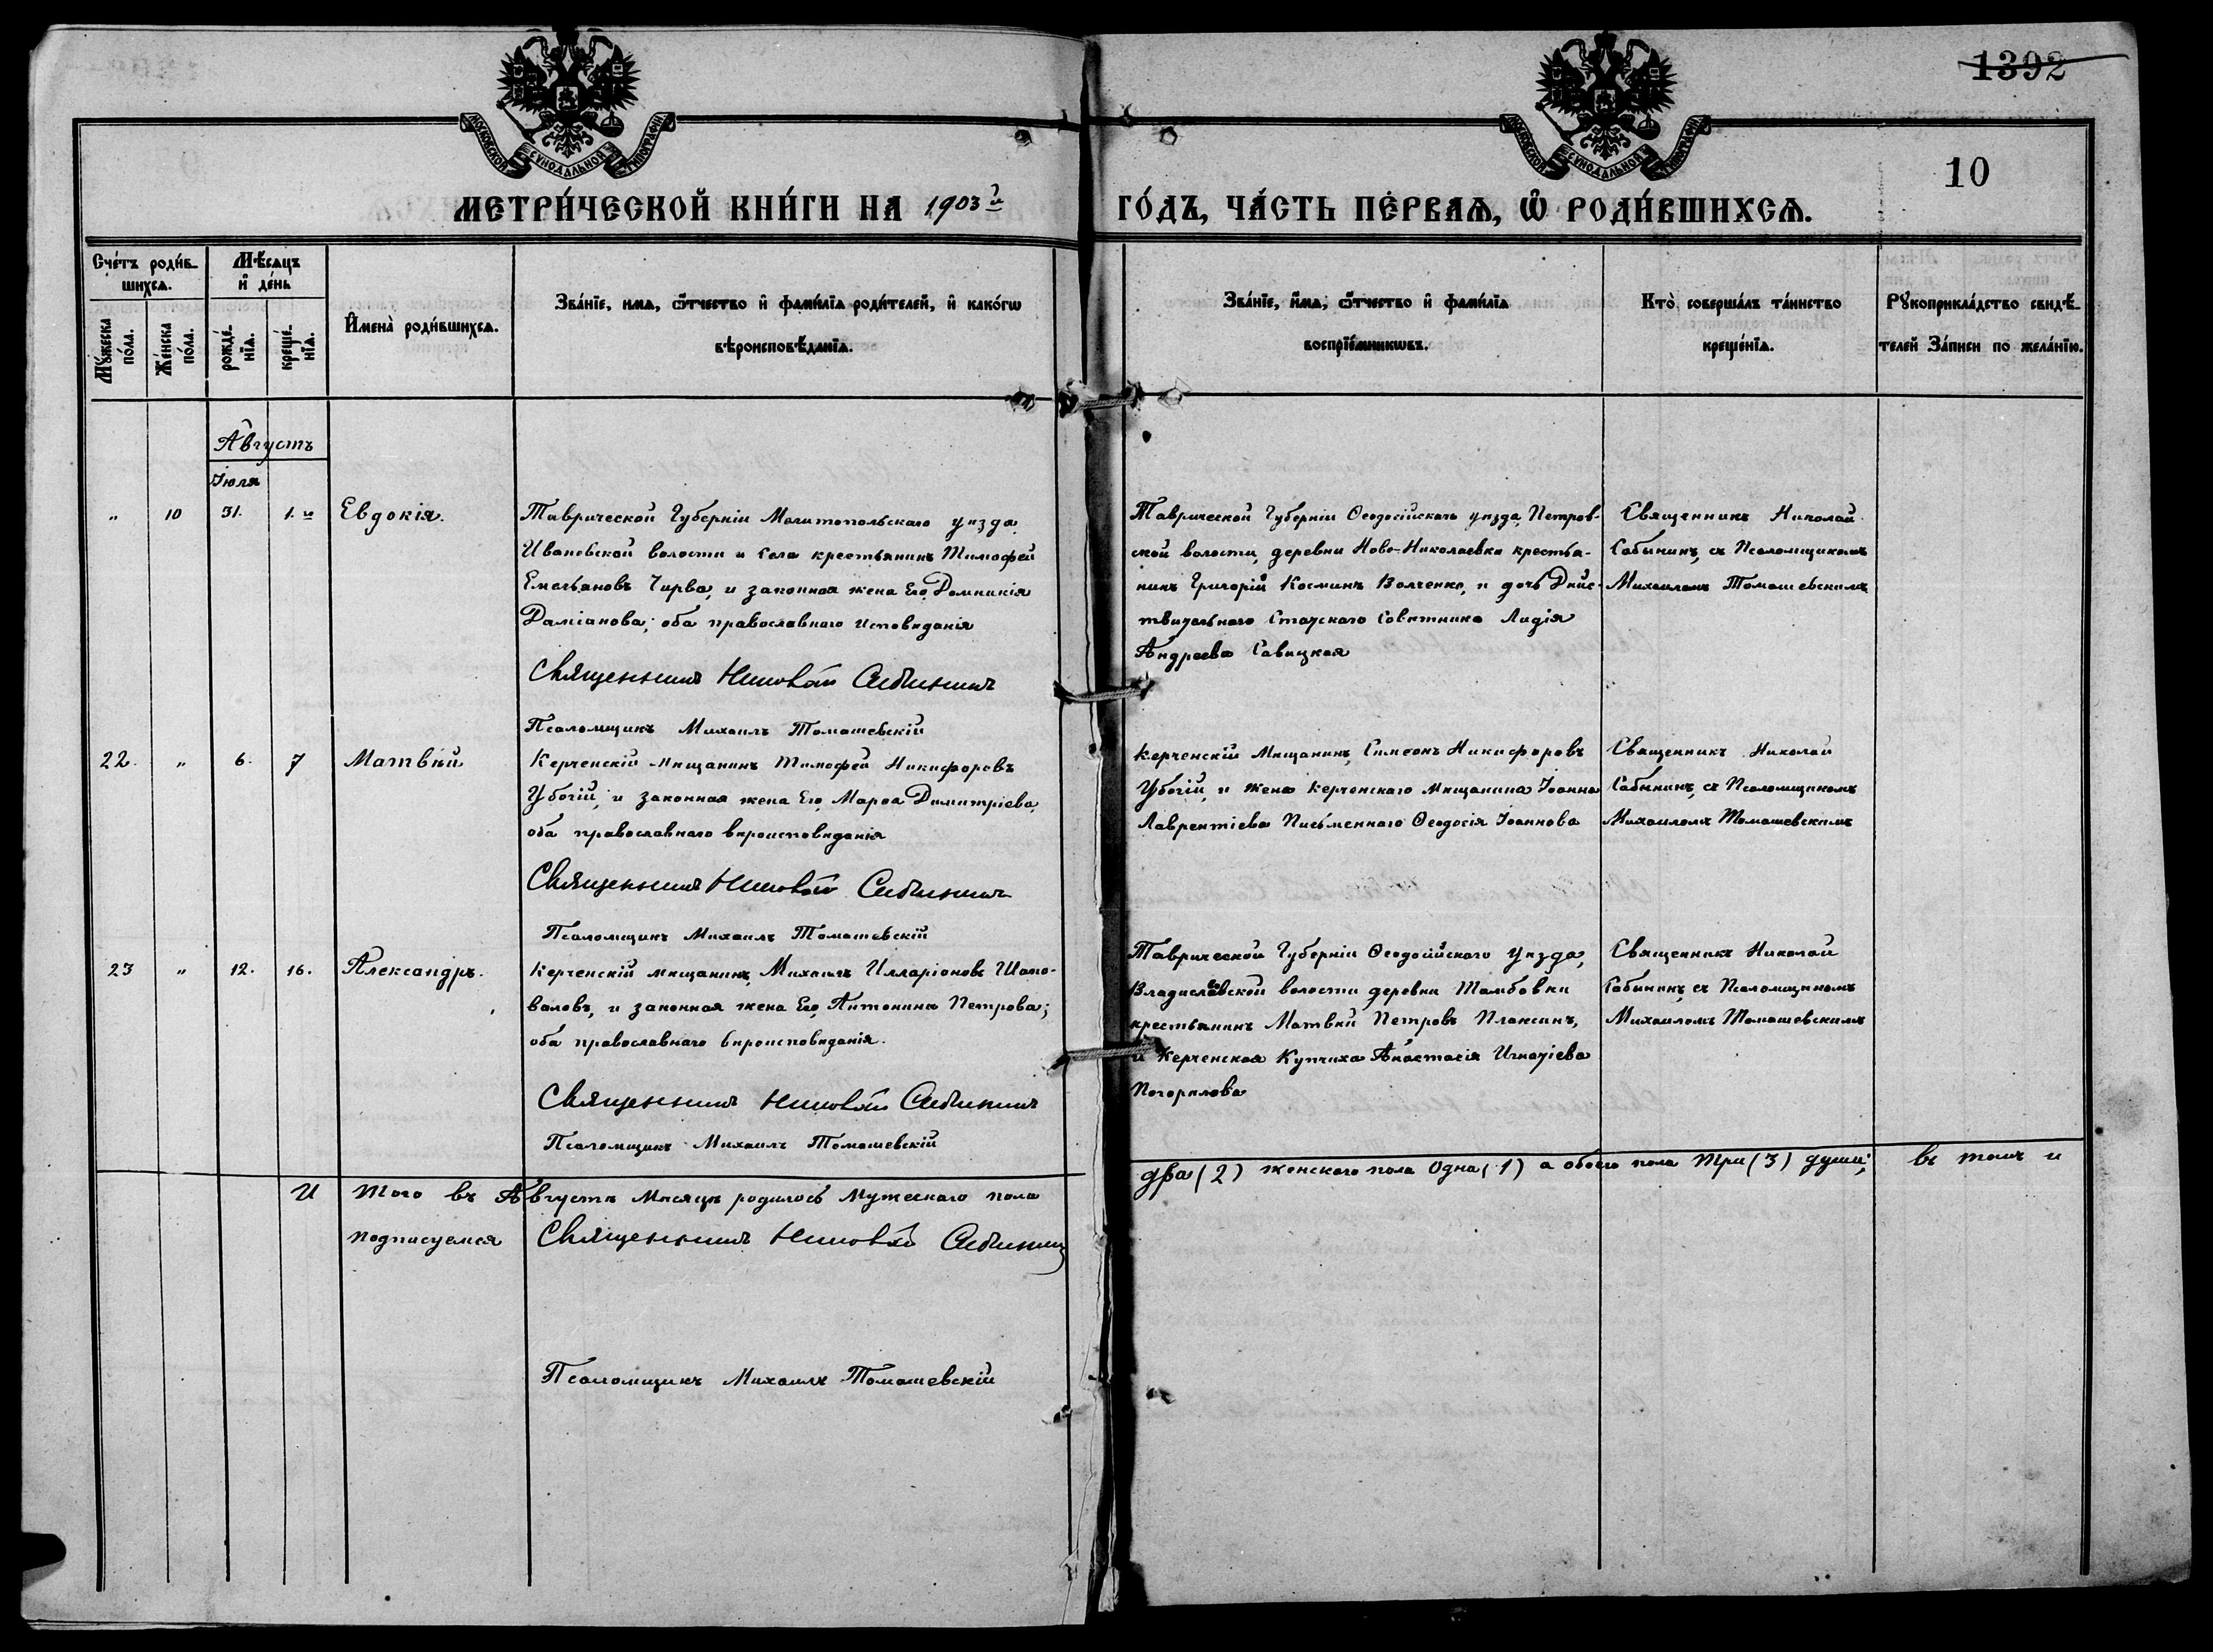 1392
МОСКОВСКОЙ СУНОДАЛЬНОЙ ТИПОГРАФІИ
МОСКОВСКОЙ СУНОДАЛЬНОЙ ТИПОГРАФІИ
10
МЕТРИ́ЧЕСКОЙ КНИ́ГИ НА 1903й ГО́ДЪ, ЧА́СТЬ ПЕ́РВАѦ, Ѡ҆ РОДИ́ВШИХСѦ.
Сче́тъ роди́в-
шихсѧ.
Мꙋ́жеска по́ла.
Же́нска по́ла.
Мѣ́сѧцъ
и҆ де́нь
рожде́-
нїѧ.
креще́-
нїѧ.
И҆мена̀ роди́вшихсѧ.
Зва́нїе, имѧ, ѻ҆́тчество и҆ фами́лїѧ роди́телей, и҆ како́гѡ
вѣроисповѣ́данїѧ.
Зва́нїе, и҆́мѧ, ѻ҆́тчество и҆ фами́лїѧ
воспрїе́мникѡвъ.
Кто̀ соверша́лъ та́инство
креще́нїѧ.
Рꙋкоприкла́дство свидѣ́-
телей за́писи по жела́нїю.
Августъ
Іюля
" 10 31. 1.го Евдокія.
Таврической Губерніи Мелитопольскаго уѣзда
Ивановской волости и села крестьянинъ Тимофей
Емельяновъ Чирва, и законная жена Его, Домникія
Даміанова; оба православнаго исповѣданія
Священникъ Николай Сабининъ
Псаломщикъ Михаилъ Томашевскій
Таврической Губерніи Ѳеодосійскаго уѣзда, Петров-
ской волости, деревни Ново-Николаевки крестья-
нинъ Григорій Косминъ Волченко, и дочь Дѣйс-
твительнаго Статскаго Совѣтника Лидія
Андреева Савицкая
Священникъ Николай
Сабининъ, съ Псаломщикомъ
Михаиломъ Томашевскимъ
22. " 6. 7 Матвѣй
Керченскій мѣщанинъ Тимофей Никифоровъ
Убогій, и законная жена Его, Марѳа Димитріева,
оба православнаго вѣроисповѣданія
Священникъ Николай Сабининъ
Псаломщикъ Михаилъ Томашевскій
Керченскій Мѣщанинъ, Симеонъ Никифоровъ
Убогій, и жена керченскаго мѣщанина Іоанна
Лаврентіева Письменнаго Ѳеодосія Іоаннова
Священникъ Николай
Сабининъ, съ Псаломщикомъ
Михаиломъ Томашевскимъ
23 " 12. 16. Александръ.
Керченскій мѣщанинъ, Михаилъ Илларіоновъ Шапо-
валовъ, и законная жена Его, Антонина Петрова;
оба православнаго вѣроисповѣданія.
Священникъ Николай Сабининъ
Псаломщикъ Михаилъ Томашевскій
Таврической Губерніи Ѳеодосійскаго уѣзда,
Владиславской волости деревни Тамбовки
крестьянинъ Матвѣй Петровъ Плаксинъ,
и Керченская Купчиха Анастасія Игнатіева
Погорѣлова
Священникъ Николай
Сабининъ, съ Псаломщикомъ
Михаиломъ Томашевскимъ
И того въ Августѣ Мѣсяцѣ родилось Мужескаго пола два (2) женскаго пола Одна (1) а обоего пола Три (3) души; въ томъ и
подписуемся Священникъ Николай Сабининъ
Псаломщикъ Михаилъ Томашевскій